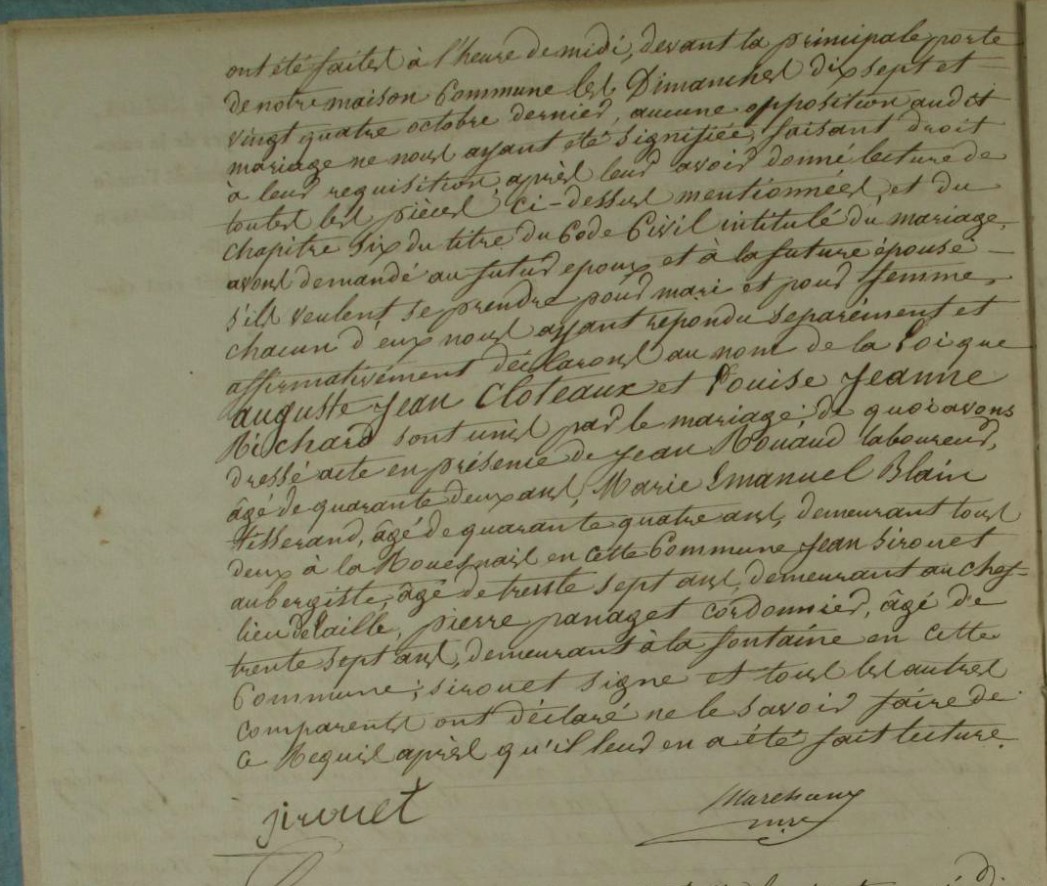 ont été faites à l'heure de midi, devant la principale porte
de notre maison Commune les Dimanches dix sept et
vingt quatre octobre dernier, aucune opposition audit
mariage ne nous ayant été signifiée, faisant droit
à leur requisition, après leur avoir donné lecture de
toutes les pièces ci-dessus mentionnées, et du
chapitre six du titre du Code Civil intitulé du mariage,
avons demandé au futur epoux et à la future épouse
s'ils veulent se prendre pour mari et pour femme,
chacun d'eux nous ayant repondu separément et
affirmativement déclarons au nom de la Loi que
auguste Jean Cloteaux et Louise Jeanne
Richard sont unis par le mariage: de quoi avons
dressé acte en présence de Jean Rouaud laboureur,
âgé de quarante deux ans, Marie Emanuel Blain
tisserand, âgé de quarante quatre ans, demeurant tous
deux à la en cette Commune Jean Sirouet
aubergiste, âgé de trente sept ans, demeurant au chef-
lieu de Laillé, pierre panaget cordonnier, âgé de
trente sept ans, demeurant à la fontaine en cette
Commune; sirouet signe et tous les autres
comparents ont déclaré ne le savoir faire de
ce Requis après qu'il leur en a été fait lecture.
sirouet